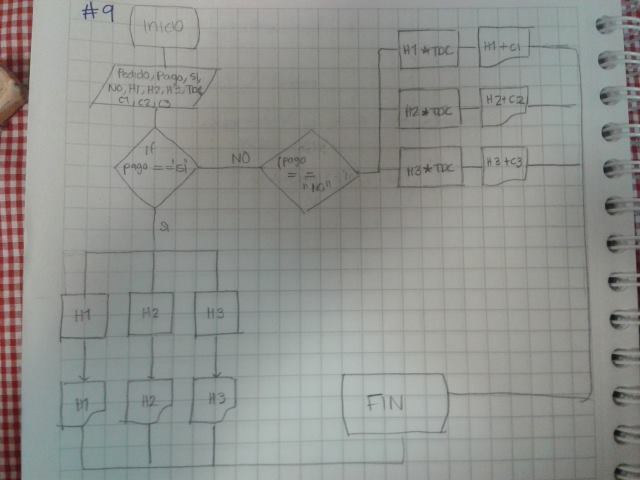 #9
Inicio
Pedido, Pago, SI,
NO, H1, H2, H3, TDC
C1, C2, C3
if
pago =='si'
NO
(pago
= =
"NO"
H1*TDC
H1+C1
H2*TDC
H2+C2
H3*TDC
H3+C3
si
H1
H2
H3
H1
H2
H3
FIN